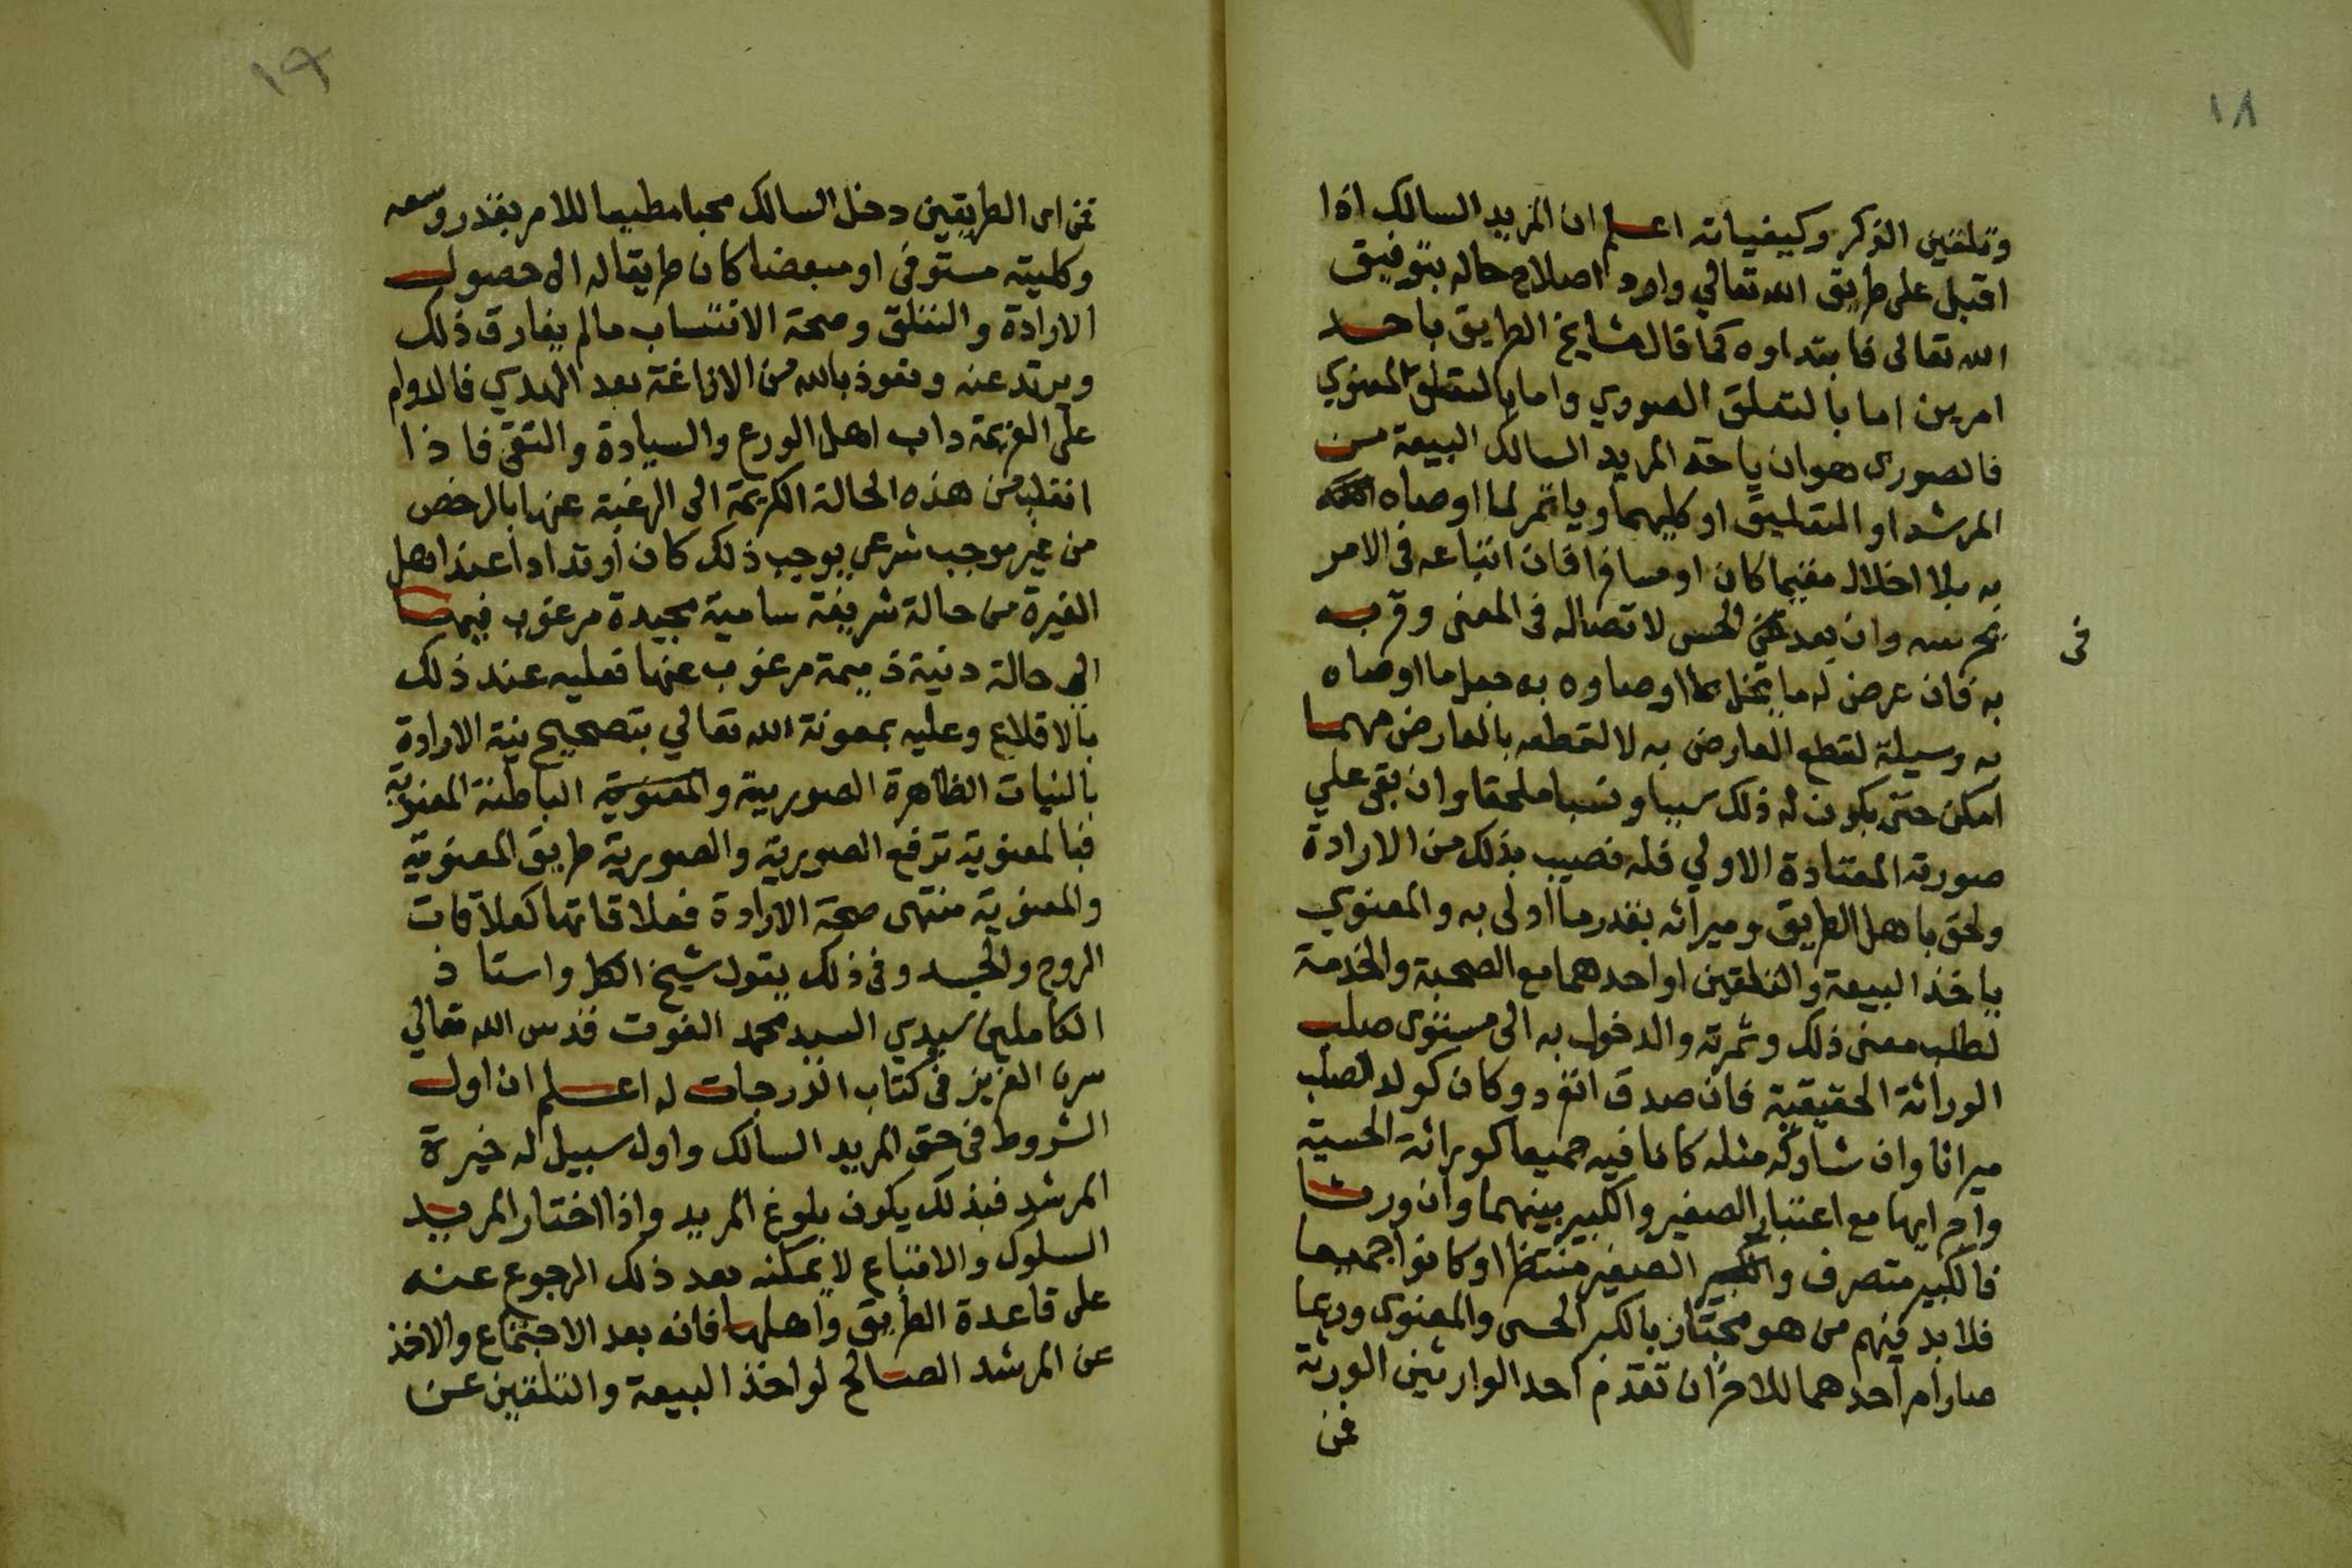 ١٨
وتلقين الذكر وكيفياته اعلم ان المريد السالك اذا
اقبل على طريق الله تعالي واراد اصلاح حاله بتوفيق
الله تعالى فابتداوه كما قال مشايخ الطريق باحد
امرين اما بالتعلق الصوري واما بالتعلق المعنوي
فالصورى هو ان ياخذ المريد السالك البيعة من
المرشد او التلقين او كليهما وياتمر لما اوصاه
به بلا اخلال مقيما كان او مسافرا فان اتباعه فى الامر
وان بعد عن الحس لاتصاله فى المعنى وقربه
فى
به فان عرض له ما يخل بما اوصاوه به جعل ما اوصاه
به وسيلة لقطع العارض به لا لقطعه بالعارض مهما
امكن حتى يكون له ذلك سببا ونسبا ملحقا وان بقى علي
صورته المعتادة الاولي فله نصيب بذلك من الارادة
ولحق باهل الطريق وميراثه بقدر ما اولى به والمعنوي
ياخذ البيعة والتلقين او احدهما مع الصحبة والخدمة
لطلب معنى ذلك وثمرته والدخول به الى مستوى صلب
الوراثة الحقيقية فان صدق انفرد وكان كولد الصلب
ميراثا وان شاركه مثله كانا فيه جميعا كوراثة الحسية
واجرايها مع اعتبار الصغير والكبير بينهما وان ورثا
فالكبير متصرف والصغير منتظرا او كانوا جميعا
فلا بد فيهم من هو مجتاز بالكبر الحسى والمعنوى وربما
صار ام احدهما للاخر ان تقدم احد الوارثين الورثة
فمن
١٩
فمن اى الطريقين دخل السالك محبا مطيعا للامر بقدر وسعه
وكليته مستوفى او مبعضا كان طريقا له الى حصول
الارادة والتعلق وصحة الانتساب ما لم يفارق ذلك
ويرتد عنه ونعوذ بالله من الازاغة بعد الهدي فالدوام
على العزيمة داب اهل الورع والسيادة والتقى فاذا
انقلب من هذه الحالة الكريمة الى الرغبة عنها بالرخص
من غير موجب شرعى يوجب ذلك كان ارتدادا عند اهل
الغيرة من حالة شريفة سامية مجيدة مرغوب فيها
الى حالة دنية ذميمة مرغوب عنها فعليه عند ذلك
بالاقلاع وعليه بمعونة الله تعالي بتصحيح نية الارادة
بالنيات الظاهرة الصورية والمعنوية الباطنة المعنوية
فبالمعنوية ترفع الصورية والصورية طريق المعنوية
والمعنوية منتهى صحة الارادة فعلاقاتها كعلاقات
الروح والجسد وفى ذلك يقول شيخ الكل واستاذ
الكاملين سيدي السيد محمد الغوث قدس الله تعالي
سره العزيز فى كتاب الدرجات له اعلم ان اول
الشروط فى حق المريد السالك واول سبيل له خيرة
المرشد فبذلك يكون بلوغ المريد واذا اختار المريد
السلوك والاتباع لا يمكنه بعد ذلك الرجوع عنه
على قاعدة الطريق واهلها فانه بعد الاجتماع والاخذ
عن المرشد الصالح لو اخذ البيعة والتلقين عن